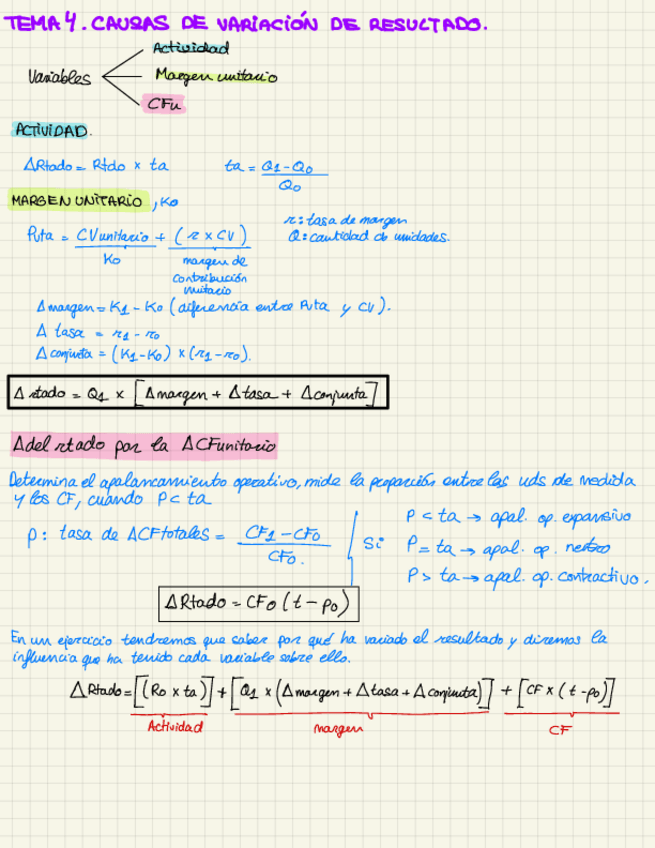 TEMA 4. CAUSAS DE VARIACIÓN DE RESULTADO.
Variables
Actividad
Margen unitario
CFu
ACTIVIDAD.
ΔRtado = Rtdo × ta
ta = Q1 - Q0 / Q0
MARGEN UNITARIO, K0
r: tasa de margen
Q: cantidad de unidades.
Puta = CVunitario + (r × CV)
K0
margen de
contribución
unitario
Δmargen = K1 - K0 (diferencia entre Puta y CV).
Δ tasa = r1 - r0
Δ conjunta = (K1 - K0) × (r1 - r0).
Δ rtado = Q1 × [Δmargen + Δtasa + Δconjunta]
Δdel rtado por la ΔCFunitario
Determina el apalancamiento operativo, mide la proporción entre las uds de medida
y los CF, cuando P < ta
p: tasa de ΔCFtotales = CF1 - CF0 / CF0.
Si
P < ta → apal. op. expansivo
P = ta → apal. op. neutro
P > ta → apal. op. contractivo.
ΔRtado = CF0 (t - p0)
En un ejercicio tendremos que saber por qué ha variado el resultado y diremos la
influencia que ha tenido cada variable sobre ello.
ΔRtado = [(R0 × ta)] + [Q1 × (Δmargen + Δtasa + Δconjunta)] + [CF × (t - p0)]
Actividad
margen
CF